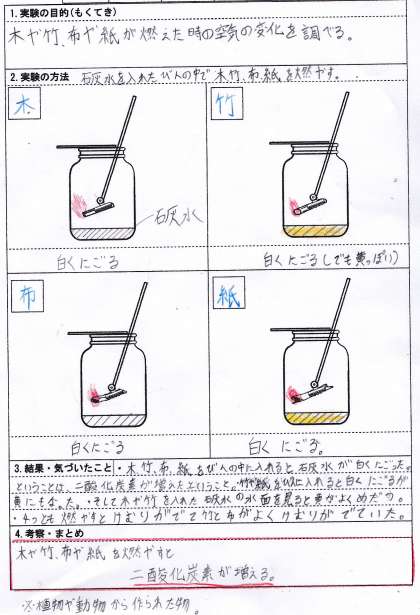 1.実験の目的(もくてき)
木や竹、布や紙が燃えた時の空気の変化を調べる。
2.実験の方法 石灰水を入れたびんの中で木、竹、布、紙を燃やす。
木 竹
石灰水
白くにごる 白くにごる(でも黄っぽい)
布 紙
白くにごる 白くにごる。
3.結果・気づいたこと ・木、竹、布、紙をびんの中に入れると石灰水が白くにごった。
ということは、二酸化炭素が増えたということ。竹や紙をびんに入れると白くにごるが
黄にもなった。・そして木や竹を入れた石灰水の水面を見ると
・4つとも燃やすとけむりがでて竹と布がよくけむりがでていた。
4.考察・まとめ
木や竹、布や紙を燃やすと
二酸化炭素が増える。
※植物や動物から作られた物。